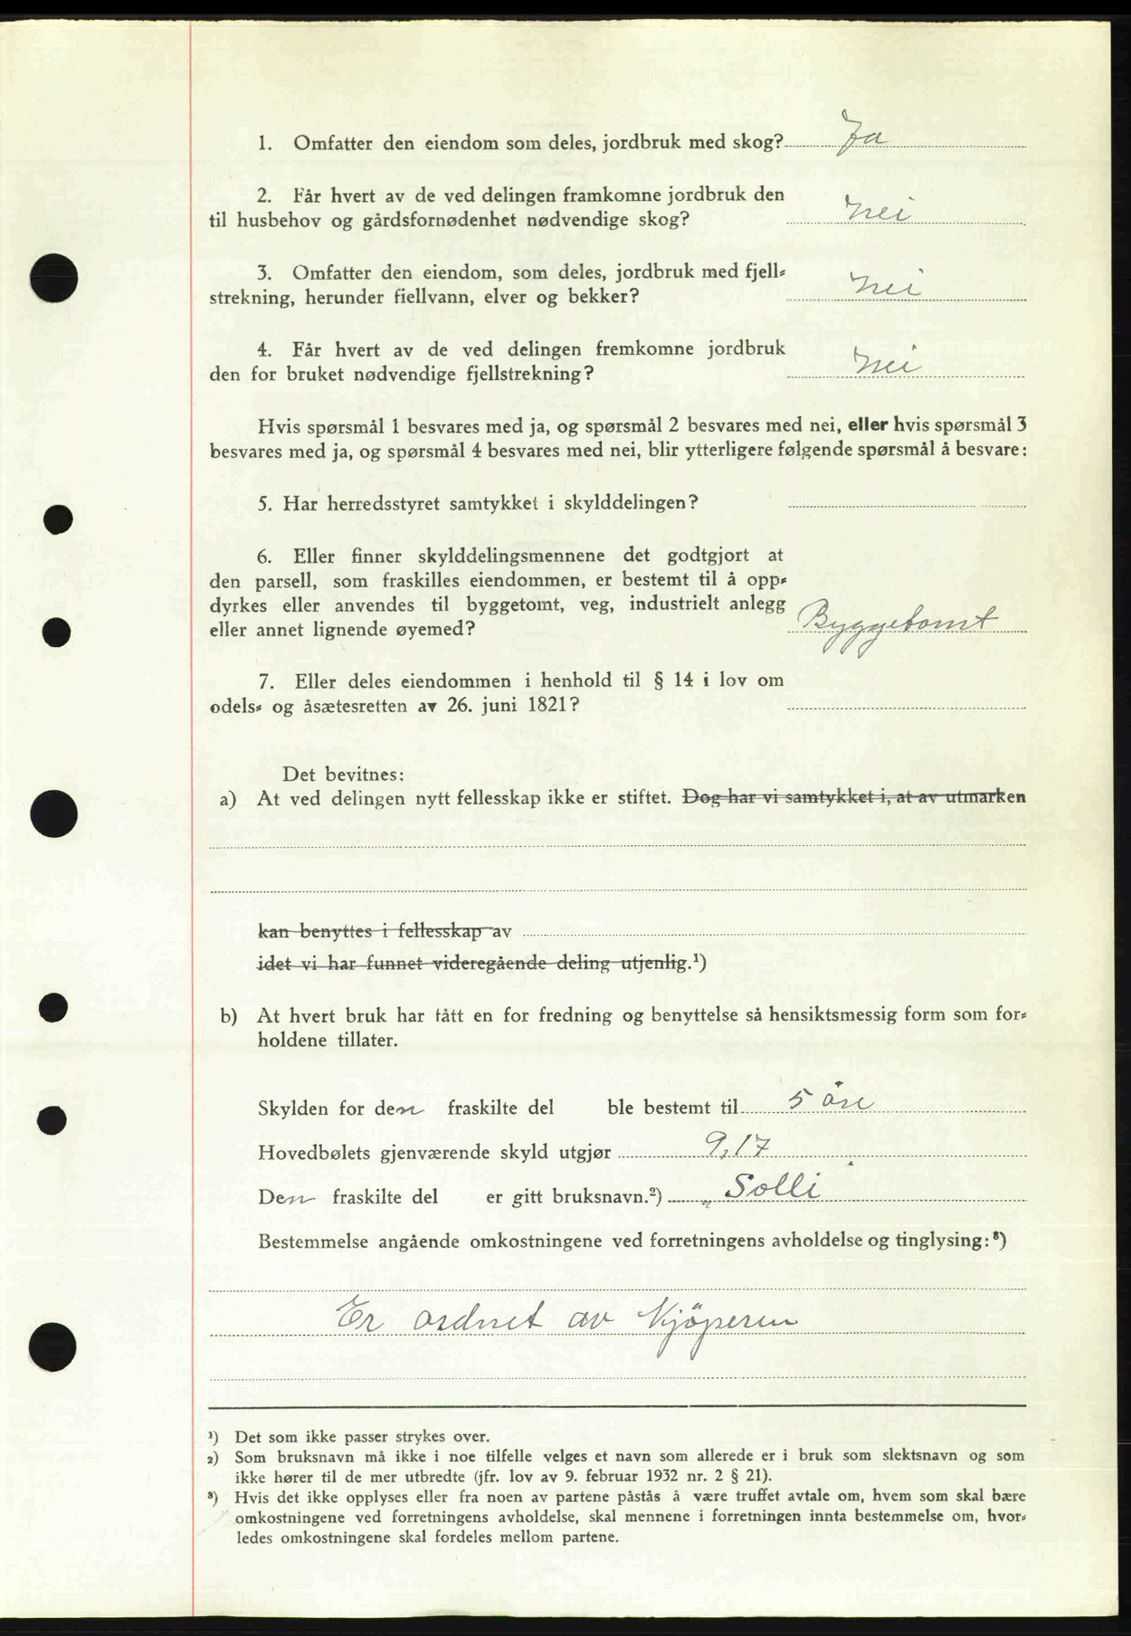 1. Omfatter den eiendom som deles, jordbruk med skog? Ja
2. Får hvert av de ved delingen framkomne jordbruk den
til husbehov og gårdsfornødenhet nødvendige skog? Nei
3. Omfatter den eiendom, som deles, jordbruk med fjell-
strekning, herunder fiellvann, elver og bekker? Nei
4. Får hvert av de ved delingen fremkomne jordbruk
den for bruket nødvendige fjellstrekning? Nei
Hvis spørsmål 1 besvares med ja, og spørsmål 2 besvares med nei, eller hvis spørsmål 3
besvares med ja, og spørsmål 4 besvares med nei, blir ytterligere følgende spørsmål å besvare:
5. Har herredsstyret samtykket i skylddelingen?
6. Eller finner skylddelingsmennene det godtgjort at
den parsell, som fraskilles eiendommen, er bestemt til å opp-
dyrkes eller anvendes til byggetomt, veg, industrielt anlegg
eller annet lignende øyemed? Byggetomt
7. Eller deles eiendommen i henhold til § 14 i lov om
odels- og åsætesretten av 26. juni 1821?
Det bevitnes:
a) At ved delingen nytt fellesskap ikke er stiftet. Dog har vi samtykket i, at av utmarken
kan benyttes i fellesskap av
idet vi har funnet videregående deling utjenlig.¹)
b) At hvert bruk har fått en for fredning og benyttelse så hensiktsmessig form som for-
holdene tillater.
Skylden for den fraskilte del ble bestemt til 5 öre
Hovedbølets gjenværende skyld utgjør 9,17
Den fraskilte del er gitt bruksnavn.²) „Solli"
Bestemmelse angående omkostningene ved forretningens avholdelse og tinglysing:³)
Er ordnet av Kjöperen
¹) Det som ikke passer strykes over.
²) Som bruksnavn må ikke i noe tilfelle velges et navn som allerede er i bruk som slektsnavn og som
ikke hører til de mer utbredte (jfr. lov av 9. februar 1932 nr. 2 § 21).
³) Hvis det ikke opplyses eller fra noen av partene påstås å være truffet avtale om, hvem som skal bære
omkostningene ved forretningens avholdelse, skal mennene i forretningen innta bestemmelse om, hvor-
ledes omkostningene skal fordeles mellom partene.